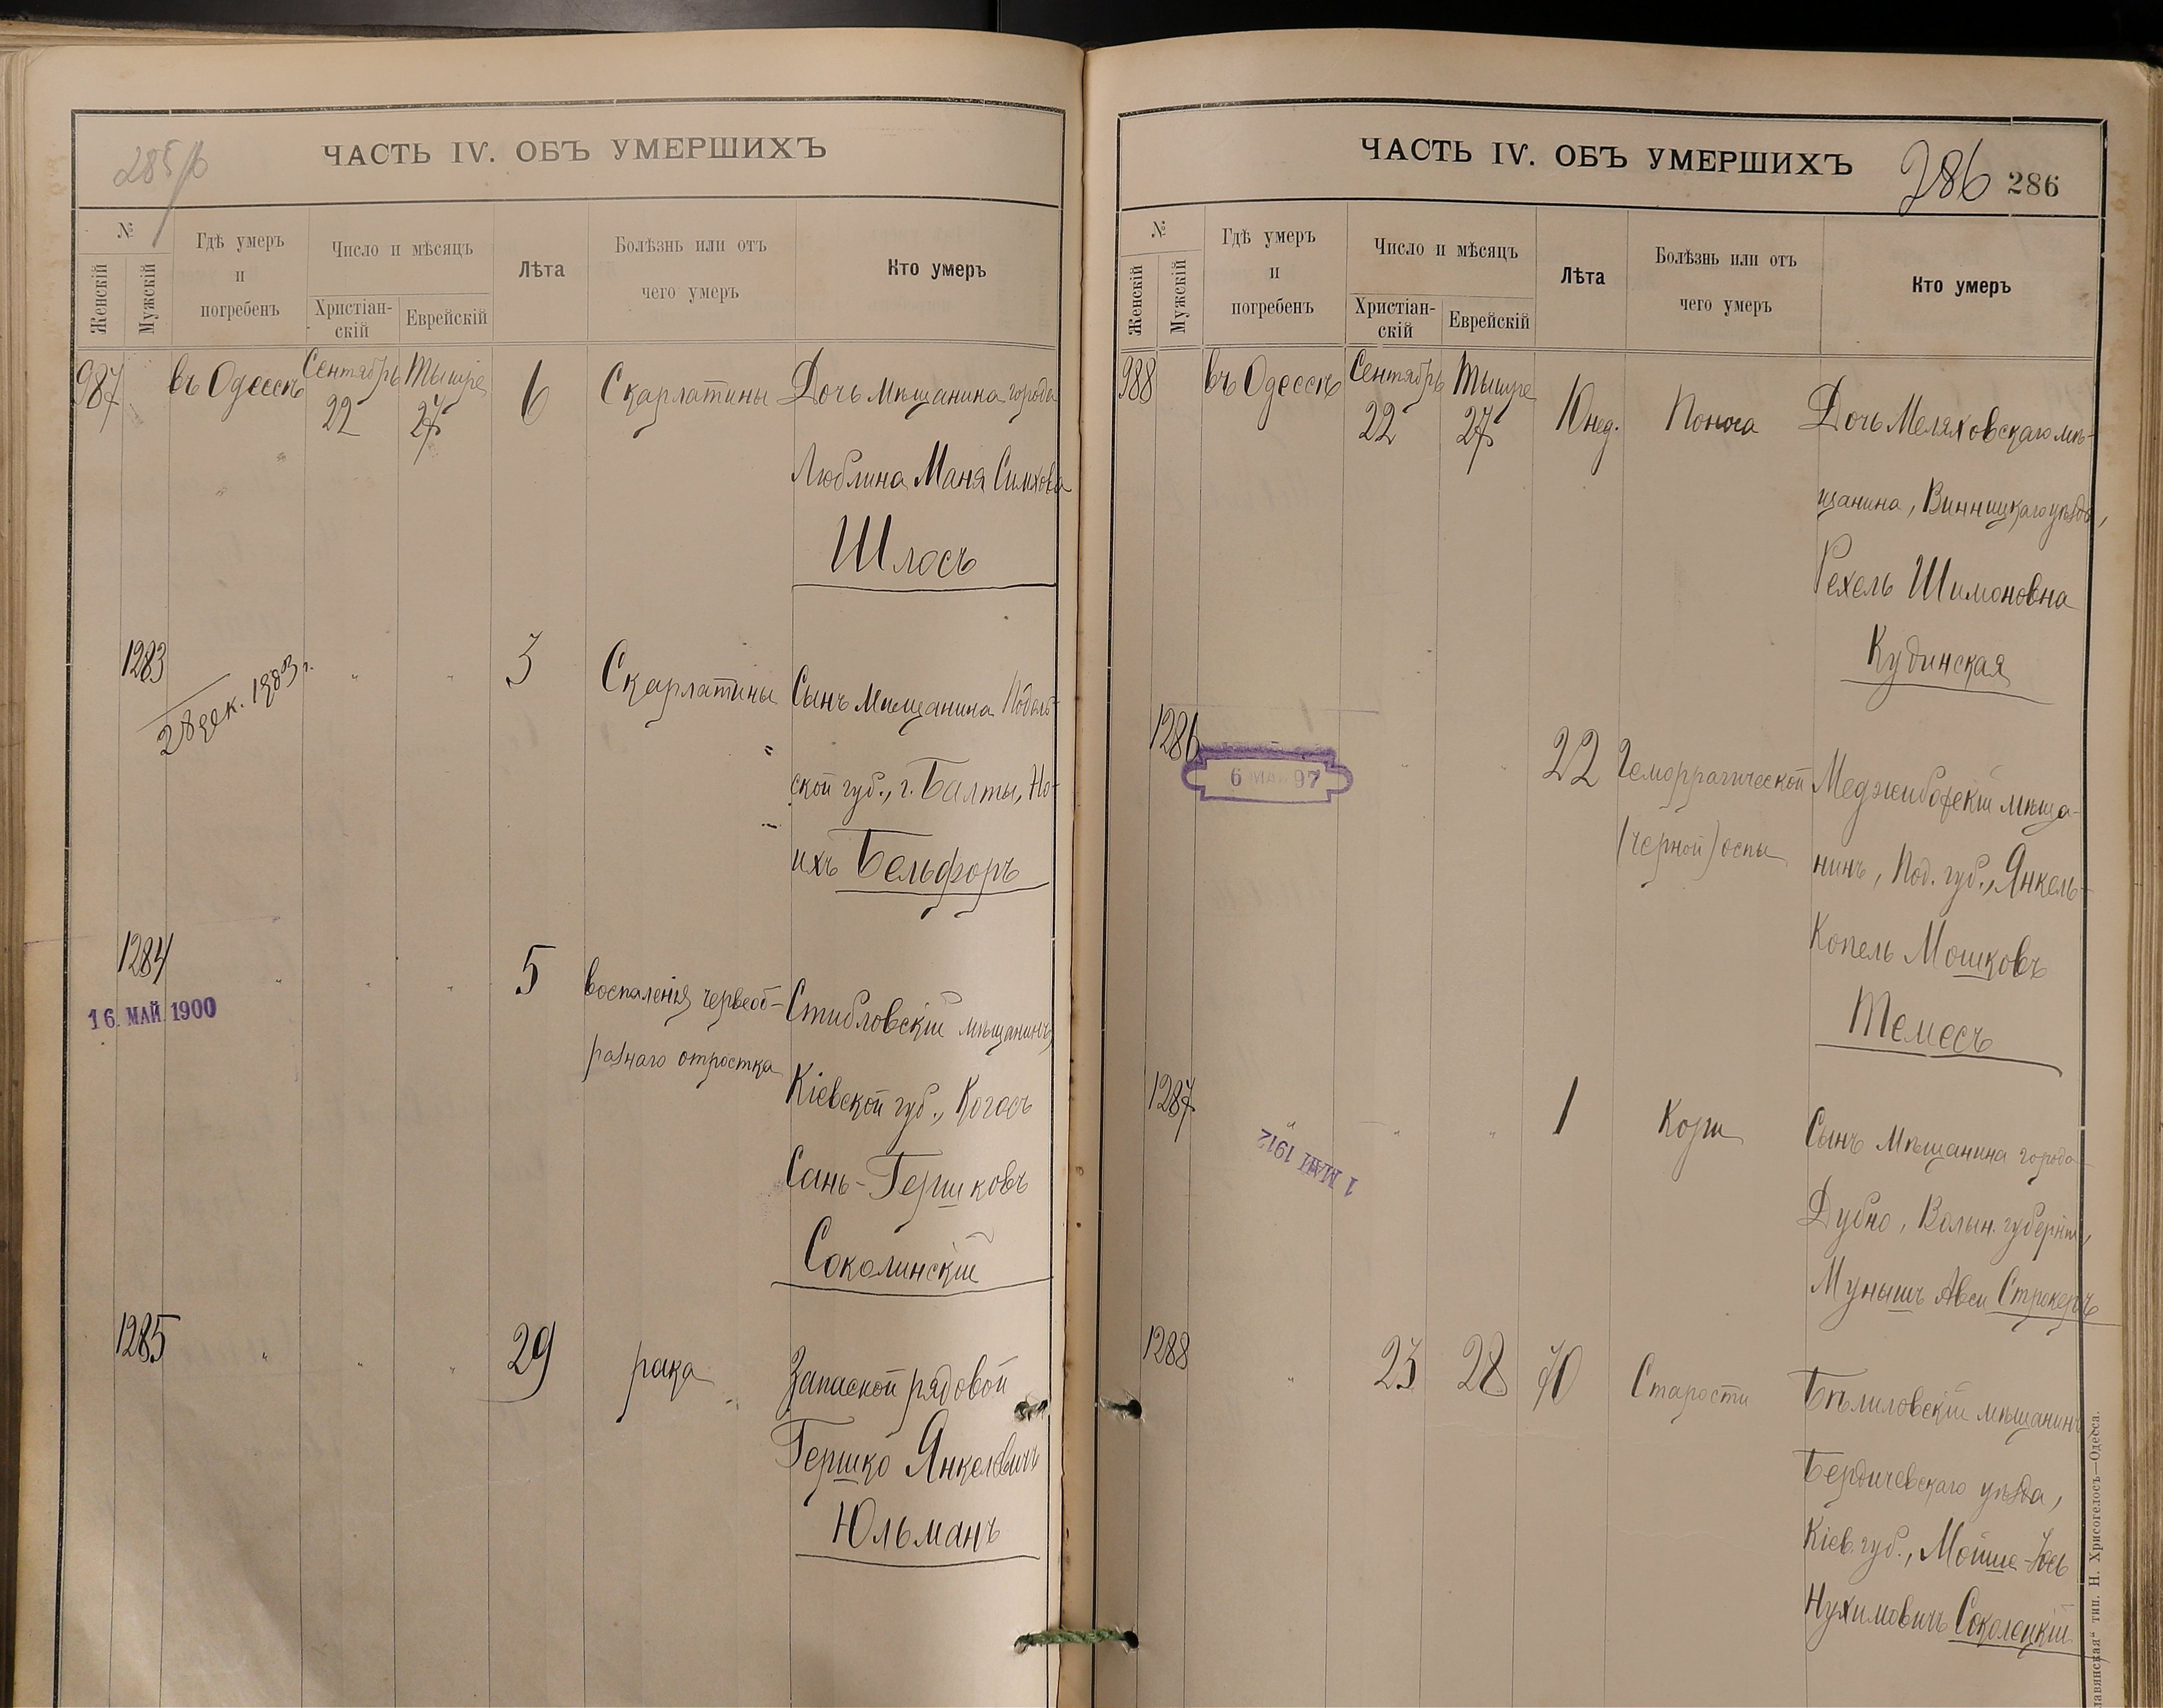 285/б
ЧАСТЬ IV. ОБЪ УМЕРШИХЪ
№
Женскій
Мужскій
Гдѣ умеръ
и
погребенъ
Число и мѣсяцъ
Христіан-
скій
Еврейскій
Лѣта
Болѣзнь или отъ
чего умеръ
Кто умеръ
987 въ Одессѣ Сентябрь 22 Тышре 27 6 Скарлатины Дочь мѣщанина города
Люблина Маня Симхова
Шлосъ
1283 " " 3 Скарлатины Сынъ мѣщанина Подоль-
28 дек. 1903 г.
ской губ., г. Балты, Но-
ихъ Бельфоръ
1284 " " " 5 воспаленія червеоб- Стибловскій мѣщанинъ,
16 МАЙ 1900
разнаго отростка
Кіевской губ., Когосъ
Сань-Гершковъ
Соколинскій
1285 " " " 29 рака Запасной рядовой
Гершко Янкелевичъ
Юльманъ
ЧАСТЬ IV. ОБЪ УМЕРШИХЪ
286 286
№
Женскій
Мужскій
Гдѣ умеръ
и
погребенъ
Число и мѣсяцъ
Христіан-
скій
Еврейскій
Лѣта
Болѣзнь или отъ
чего умеръ
Кто умеръ
988 въ Одессѣ Сентябрь 22 Тышре 27 10 нед. Поноса Дочь Меляховскаго мѣ-
щанина, Винницкаго уѣзда,
Рехель Шимоновна
Кудинская
1286 " " 22 Геморрагической Меджибожскій мѣща-
6 МАЙ 97
(черной) оспы
нинъ, Под. губ., Янкель-
Копель Мошковъ
Темесъ
1287 " " " 1 Кори Сынъ мѣщанина города
1 МАЙ 1912
Дубно, Волын. губерніи,
Мунышъ Авси Строкеръ
1288 " 23 28 70 Старости Бѣлиловскій мѣщанинъ
Бердичевскаго уѣзда,
Кіев. губ., Мойше-Іось
Нухимовичъ Соколецкій
лавянская" тип. Н. Хрисогелосъ—Одесса.